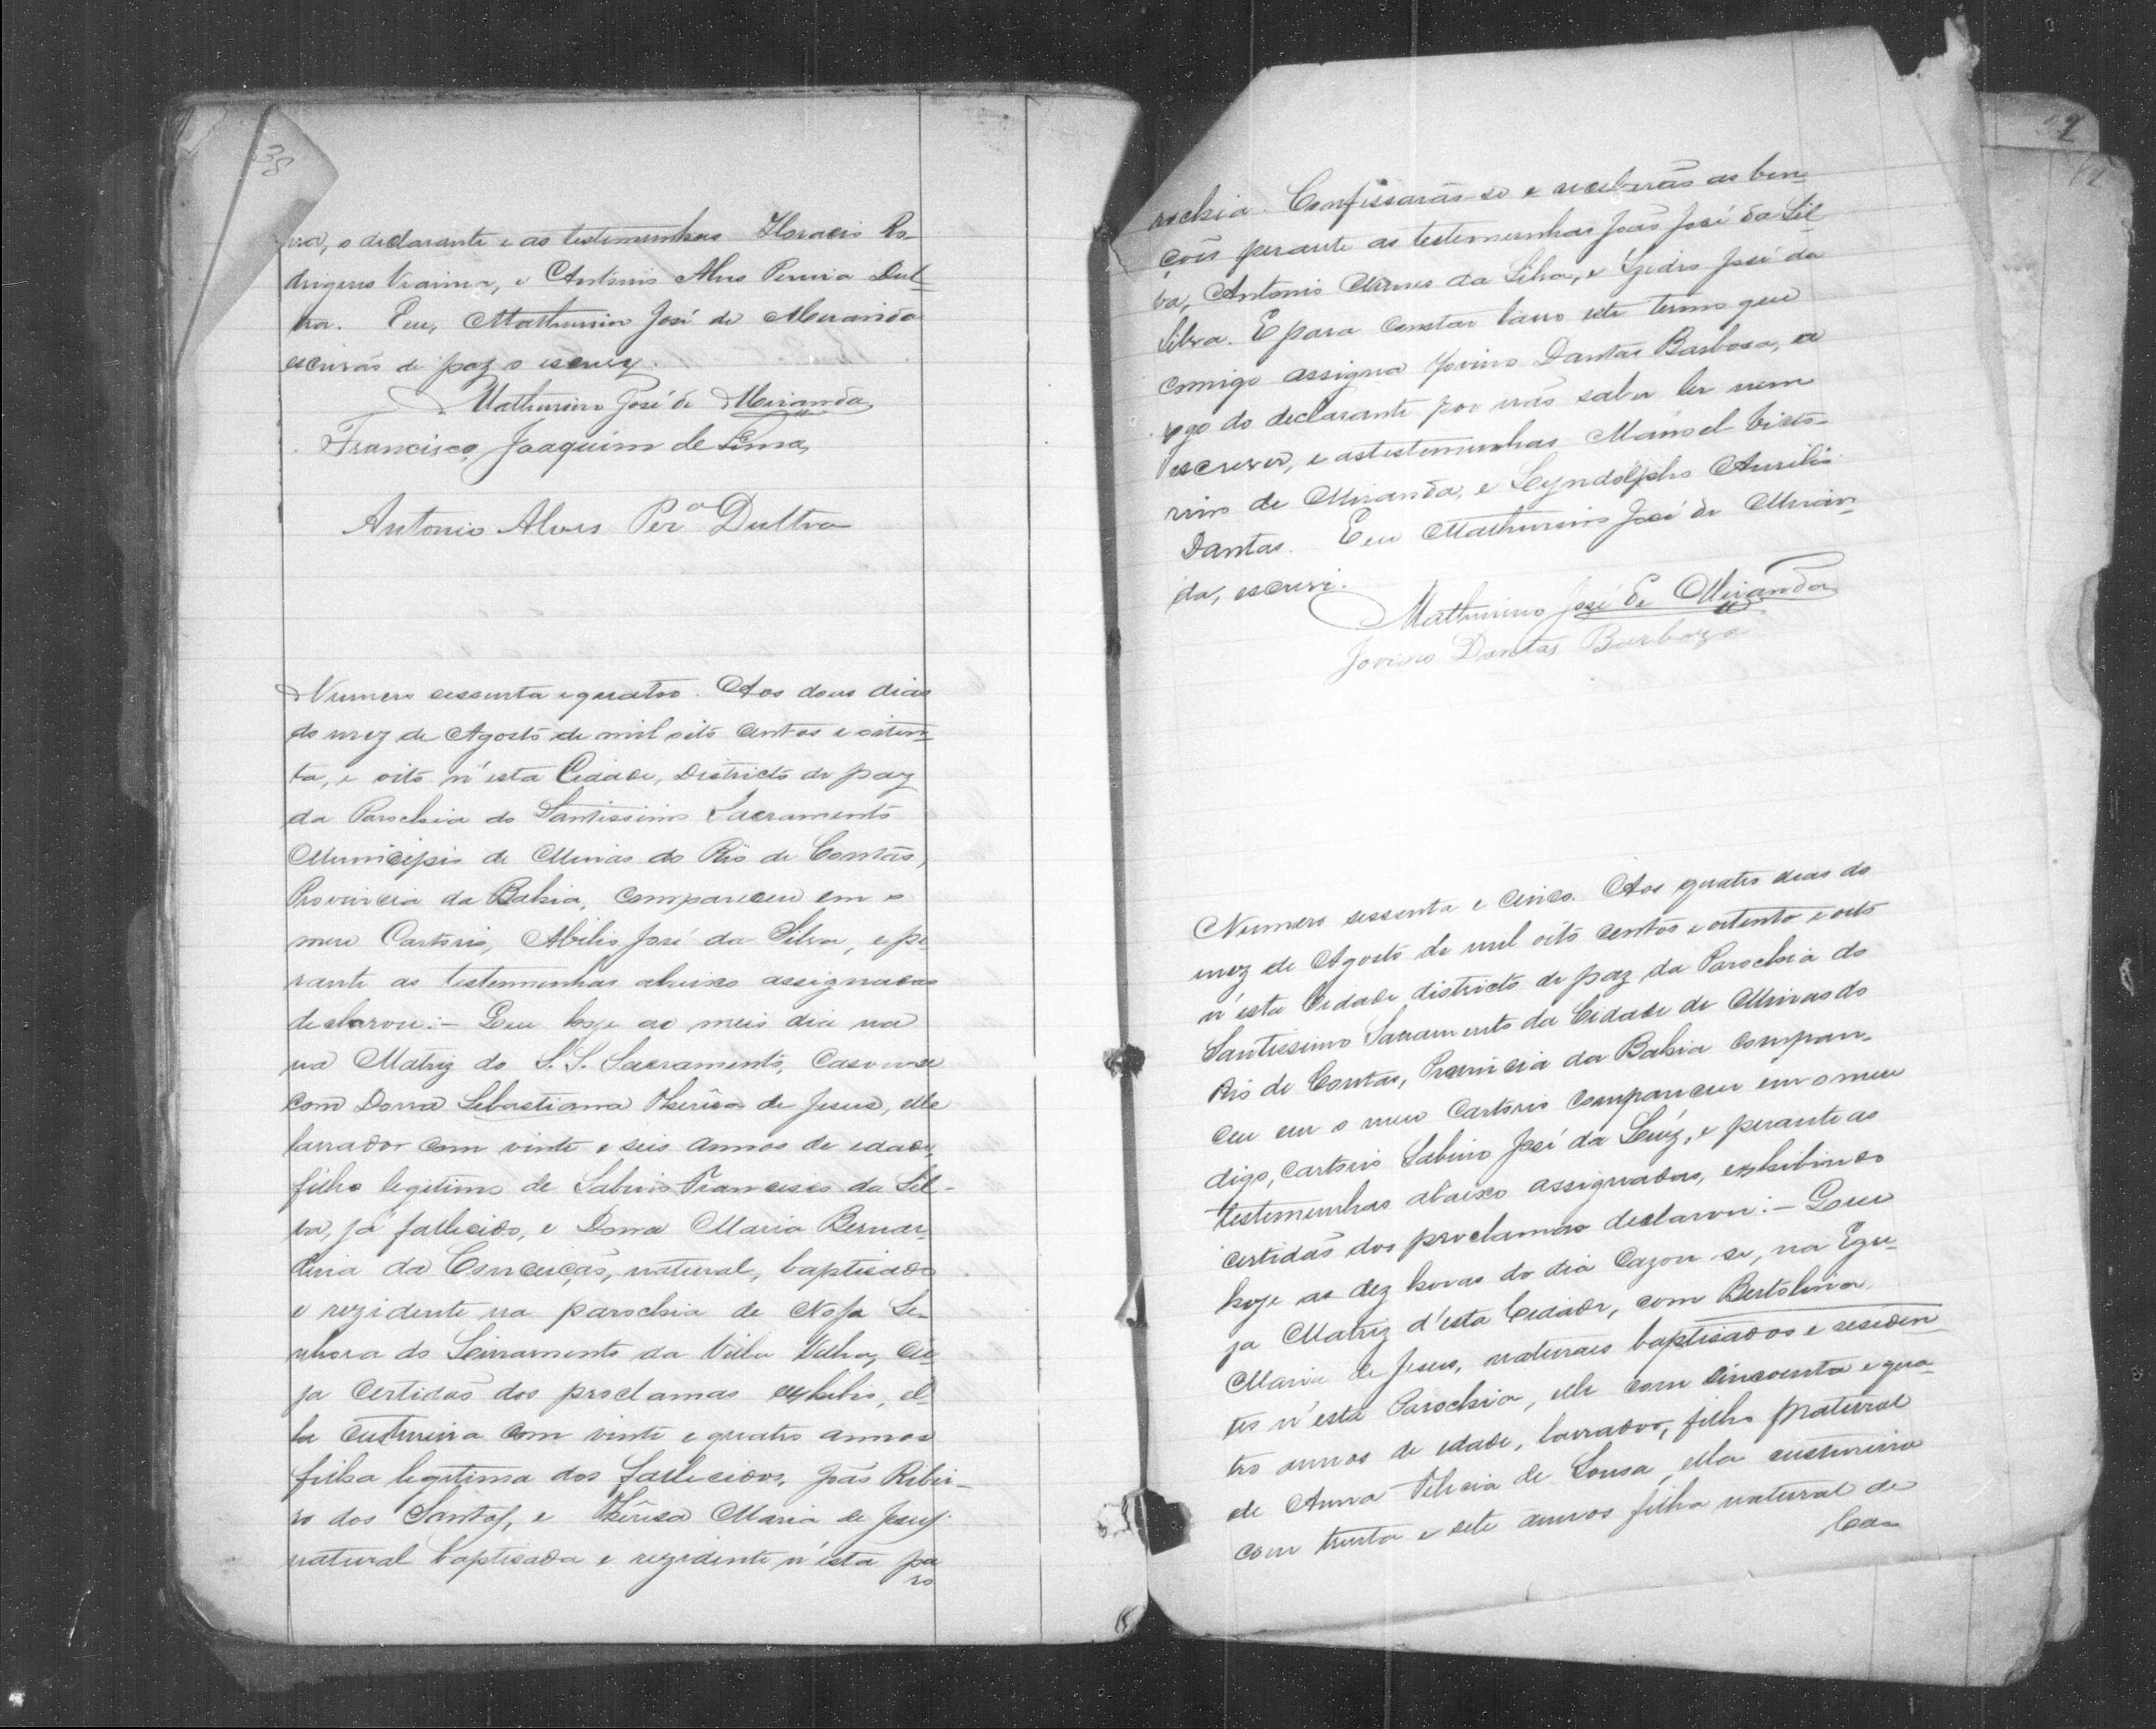 38
va, o declarante e as testemunhas Horacio Ro-
drigues Vianna, e Antonio Alves Pereira Dul-
tra. Eu, Mathurino José de Miranda
escrivão de paz o escrevy.
Mathurino José de Miranda
Francisco Joaquim de Lima
Antonio Alves Per.ª Dultra
Numero sessenta e quatro. Aos dous dias
do mez de Agosto de mil oito centos e oiten-
ta, e oito n'esta Cidade, Districto de paz
da Parochia do Santissimo Sacramento
Municipio de Minas do Rio de Contas,
Provincia da Bahia, compareceu em o
meu Cartorio, Abilio José da Silva, e pe
rante as testemunhas abaixo assignadas
declarou:- Que hoje ao meio dia na
na Matriz do S. S. Sacramento, Casou-se
com Dona Sebastiana Thereza de Jesus, elle
lavrador com vinte e seis annos de edade,
filho legitimo de Sabino Francisco da Sil-
va, já fallecido, e Dona Maria Bernar-
dina da Conceição, natural, baptisado
e rezidente na parochia de Nossa Se-
nhora do Livramento da Villa Velha, cu-
ja certidão dos proclamas exhibio, el-
la custureira com vinte e quatro annos
filha legitima dos fallecidos, João Ribei-
ro dos Santos, e Thereza Maria de Jesus
natural baptisada e rezidente n'esta pa
ro
rochia. Confissarão-se e receberão as ben-
çois perante as testemunhas João José da Sil-
va, Antonio Nunes da Silva, e José da
Silva. E para constar lavro este termo que
comigo assigna Jovino Dantas Barbosa, a
rogo do declarante por não saber ler nem
escrever, e as testemunhas Manoel Victo-
rino de Miranda, e Lyndolpho Aurelio
Dantas. Eu Mathurino José de Miran-
da, escrevi.
Mathurino José de Miranda
Jovino Dantas Barboza
Numero sessenta e cinco. Aos quatro dias do
mez de Agosto de mil oito centos e oitenta e oito
n'esta Cidade districto de paz da Parochia do
Santissimo Sacramento da Cidade de Minas do
Rio de Contas, Provincia da Bahia compare-
ceu em o meu Cartorio compareceu em o meu
digo, cartorio Sabino José da Luz, e perante as
testemunhas abaixo assignadas, exhibindo
certidão dos proclamas declarou:- Que
hoje as dez horas do dia cazou se, na Egre-
ja Matriz d'esta Cidade, com Bertolina
Maria de Jesus, naturaes baptisados e residen-
tes n'esta Parochia, elle com cincoenta e qua-
tro annos de edade, lavrador, filho natural
de Anna Felicia de Sousa, ella custureira
com trinta e sete annos filha natural de
Ca-